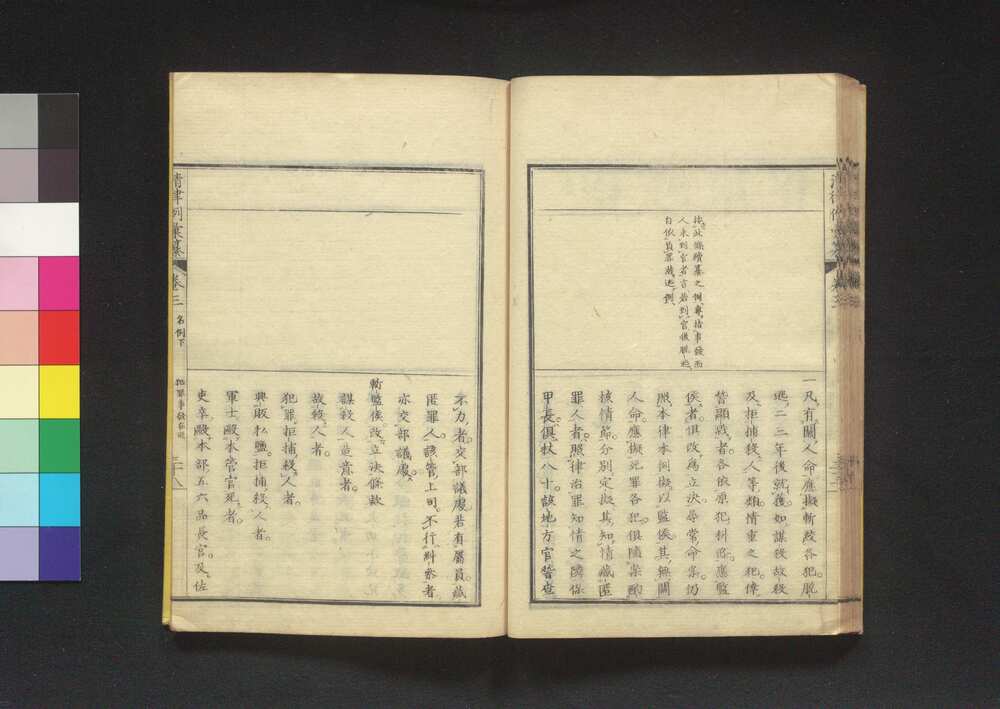 按此條續纂之例專指事發而
人未到官者言若到官後脫逃
自依負罪潛逃例
一凡有關人命應擬斬絞各犯脫
逃二三年後就獲如謀殺故殺
及拒捕殺人等類情重之犯倖
稽顯戮者各依原犯科罪應監
候者俱改為立決尋常命案仍
照本律本例擬以監候其無關
人命應擬死罪各犯俱隨案酌
核情節分別定擬其知情藏匿
罪人者照律治罪知情之隣保
甲長俱杖八十該地方官督查
清律例彙纂 卷三 名例下
不力者交部議處若有屬員藏
匿罪人該管上司不行糾叅者
亦交部議處
斬監候改立決條款
謀殺人造意者
故殺人者
犯罪拒捕殺人者
興販私鹽拒捕殺人者
軍士毆本管官死者
吏卒毆本部五六品長官及佐